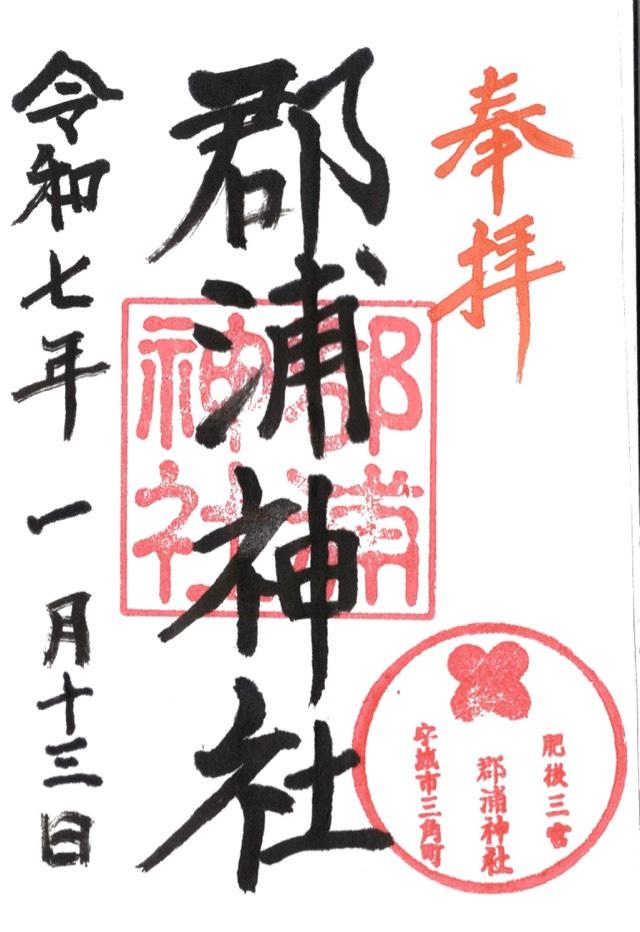 奉拝
郡浦神社
令和七年 一月十三日
郡浦
神社
肥後三宮
郡浦神社
宇城市三角町